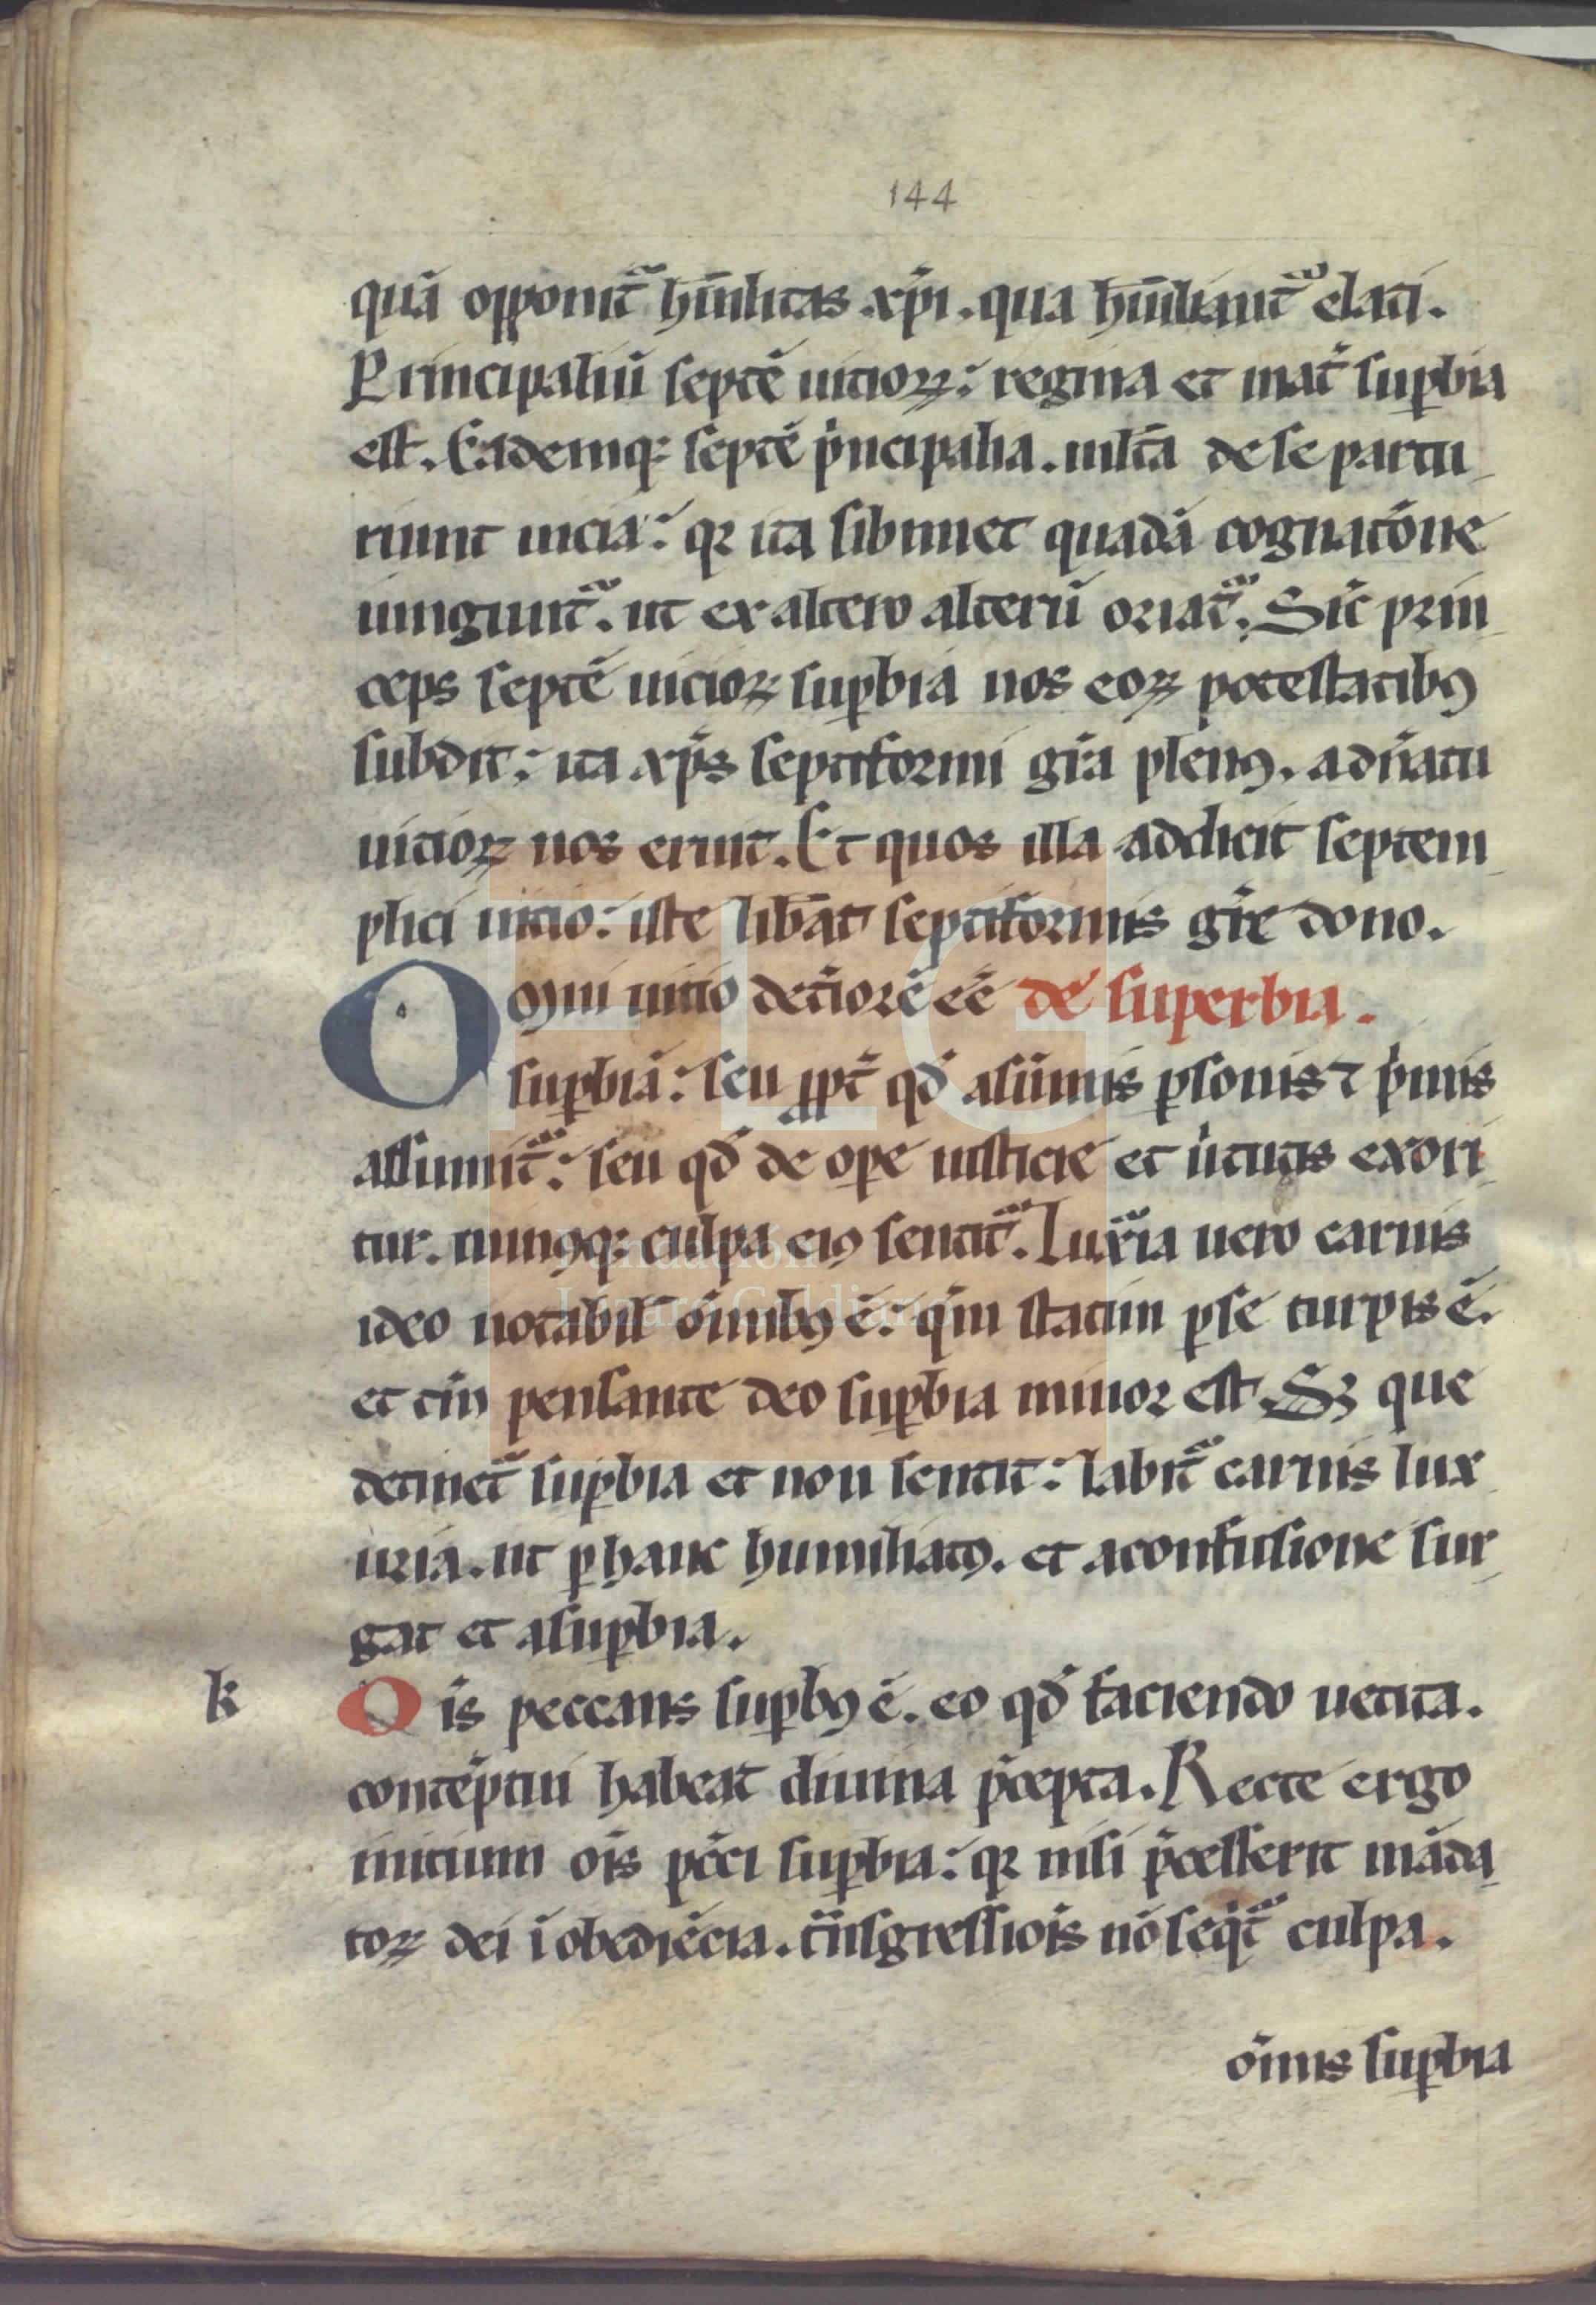 144
quā opponit᷑ hūilitas xp̄i. qua hūiliant᷑ elati.
Principaliū septē uitioꝝ: regina et mat̄ suꝑbia
est. Eademq; septē p̄ncipalia. mlt̄a de se partu
riunt uicia: qꝛ ita sibimet quadā cognatōne
iungunt᷑. ut ex altero alterū oriat᷑. Sic̄ prin
ceps septē uicioꝝ suꝑbia nos eoꝝ potestatibꝯ
subdit: ita xp̄s septiformi gr̄a plenꝯ. a dn̄atu
uicioꝝ nos eruit. Et quos illa addicit septem
plici uitio: iste lib̄at septiformis gr̄e dono.
Omni uitio det̄iorē eē de superbia.
suꝑbiā: seu ꝓpt̄ qd̄ a sūmis ꝑsonis ⁊ p̄mis
assumit᷑: seu qd̄ de oꝑe iusticie et u̇tutis exori
tur. minꝯq; culpa eiꝯ sentit᷑. Luxr̄ia uero carnis
ideo notabil̄ ōmnibꝯ ē: qm̄ statim ꝑse turpis ē.
et tm̄ pensante deo suꝑbia minor est. Sꝫ que
detinet᷑ suꝑbia et non sentit: labit᷑ carnis lux
uria. ut ꝑ hanc humiliatꝯ. et a confusione sur
gat et a suꝑbia.
k
Ois peccans suꝑbꝯ ē. eo qd̄ faciendo uetita.
contēptui habeat diuina p̄cepta. Recte ergo
initium ois pc̄ci suꝑbia: qꝛ nisi p̄cesserit māda
toꝝ dei īobediēcia. t̄nsgressiois nō seqit᷑ culpa.
ōmis suꝑbia
FLG
Fundación
Lázaro Galdiano